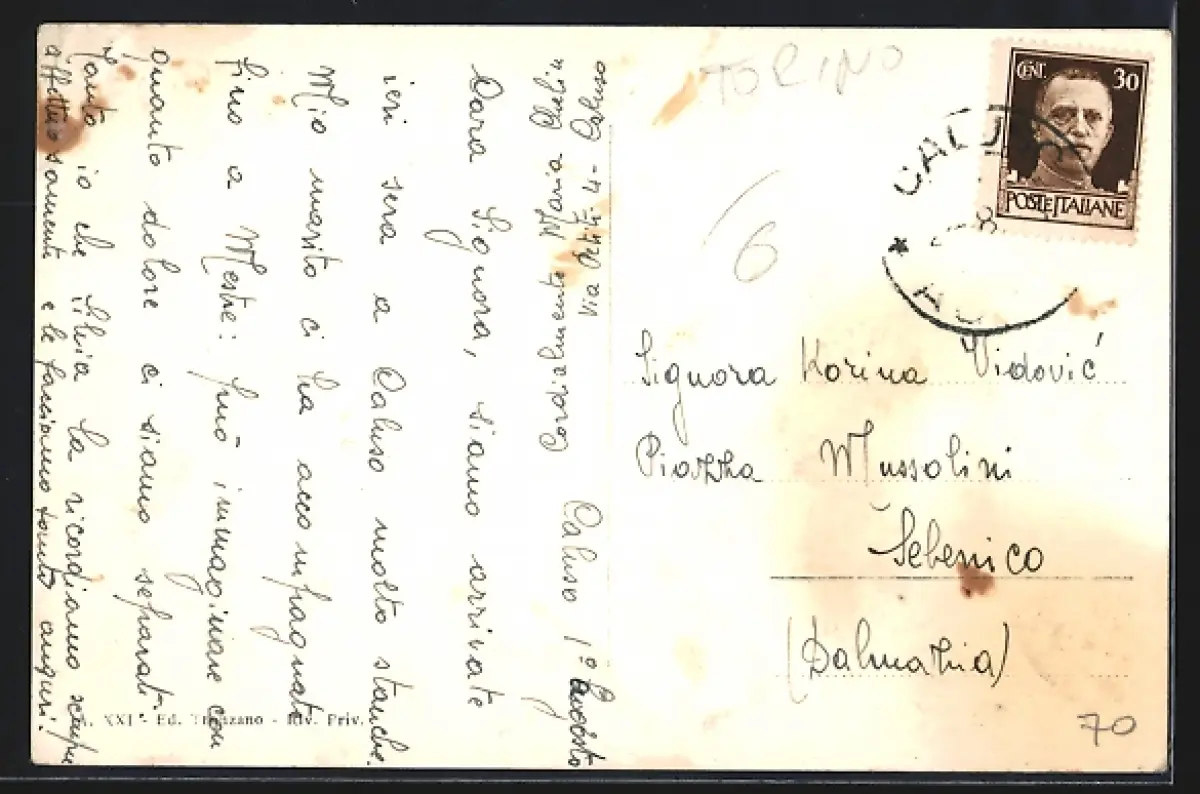 Caluso 1° Augosto
Cara Signora, siamo arrivate
ieri sera a Caluso molto stanche.
Mio marito ci ha accompagnati
fino a Mestre: può immaginare con
quanto dolore ci siamo separati.
Tanto io che Silvia la ricordiamo sempre
affettuosamente e le facciamo tanti auguri.
Cordialmente Maria
Caluso
TORINO
6
CENT. 30
POSTE ITALIANE
Signora Korina Vidović
Piazza Mussolini
Šebenico
(Dalmazia)
70
A. XXI - Ed. - Riv. Priv.